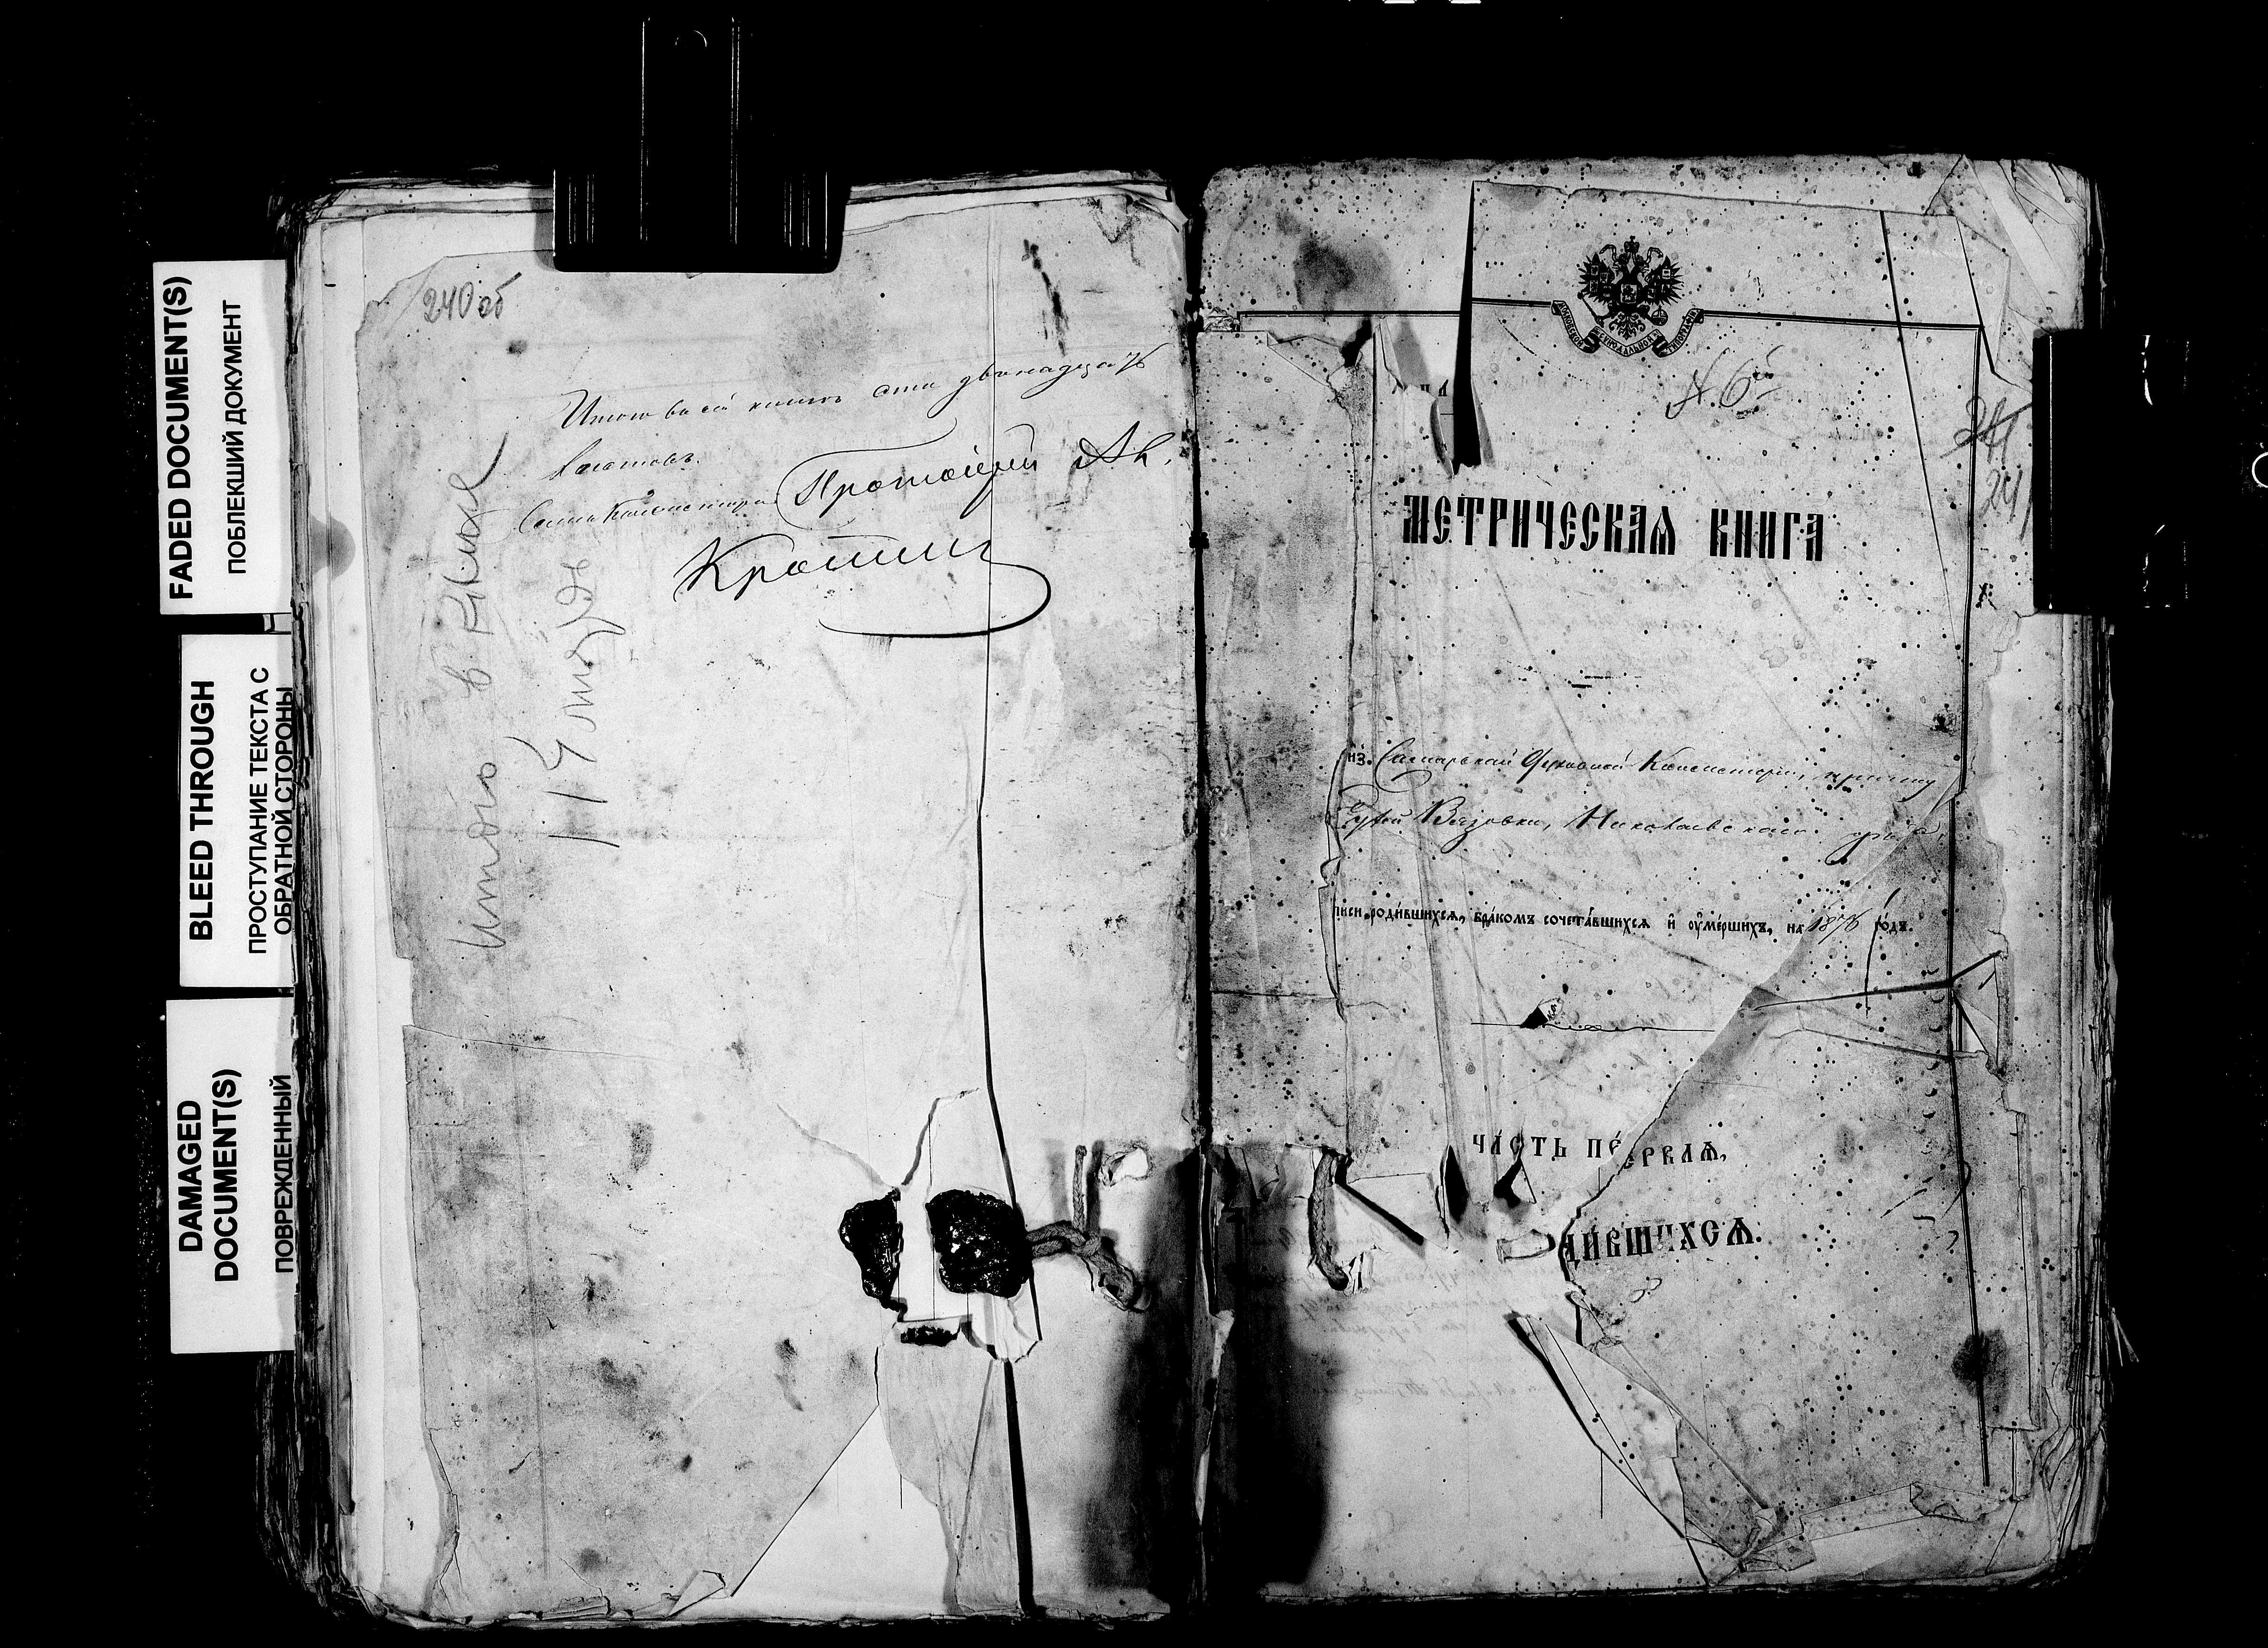 FADED DOCUMENT(S)
ПОБЛЕКШИЙ ДОКУМЕНТ
BLEED THROUGH
ПРОСТУПАНИЕ ТЕКСТА С
ОБРАТНОЙ СТОРОНЫ
DAMAGED
DOCUMENT(S)
ПОВРЕЖДЕННЫЙ
240 об
Итого в сей книге сто двенадцать
листовъ.
Протоіерей
Кротков
Итого в
114
№ 6й
241
МЕТРИЧЕСКАѦ КНИГА
из. Самарской Духовной Консисторіи, причту
Вязовки, Николаевскаго уѣзда,
писи роди́вшихсѧ, бра́комъ сочета́вшихсѧ и҆ ᲂу҆ме́ршихъ, на 1876 го́дъ.
ЧА́СТЬ ПЕ́РВАѦ,
ДИ́ВШИХСѦ.